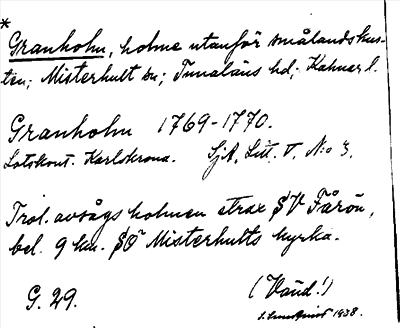 *
Granholm, holme utanför smålandskus-
ten; Misterhult sn; Tunaläns hd; Kalmar l.
Granholm 1769-1770.
Lotskont. Karlskrona. SjA, Litt. V. No 3.
Trol. avsågs holmen strax SV Fårön,
bel. 9 km. SO Misterhults kyrka.
G. 29.
(Vänd!)
S. Lundqvist 1938.